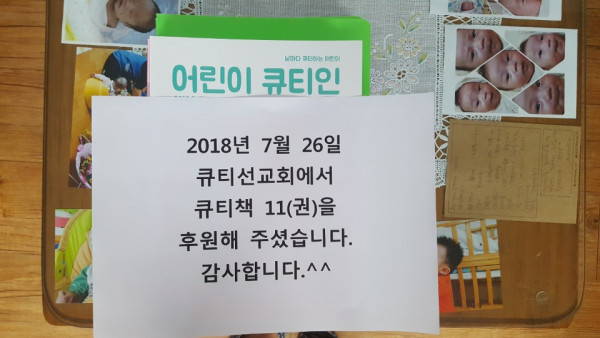 날마다 큐티하는 어린이
어린이 큐티인
2018년 7월 26일
큐티선교회에서
큐티책 11(권)을
후원해 주셨습니다.
감사합니다.^^